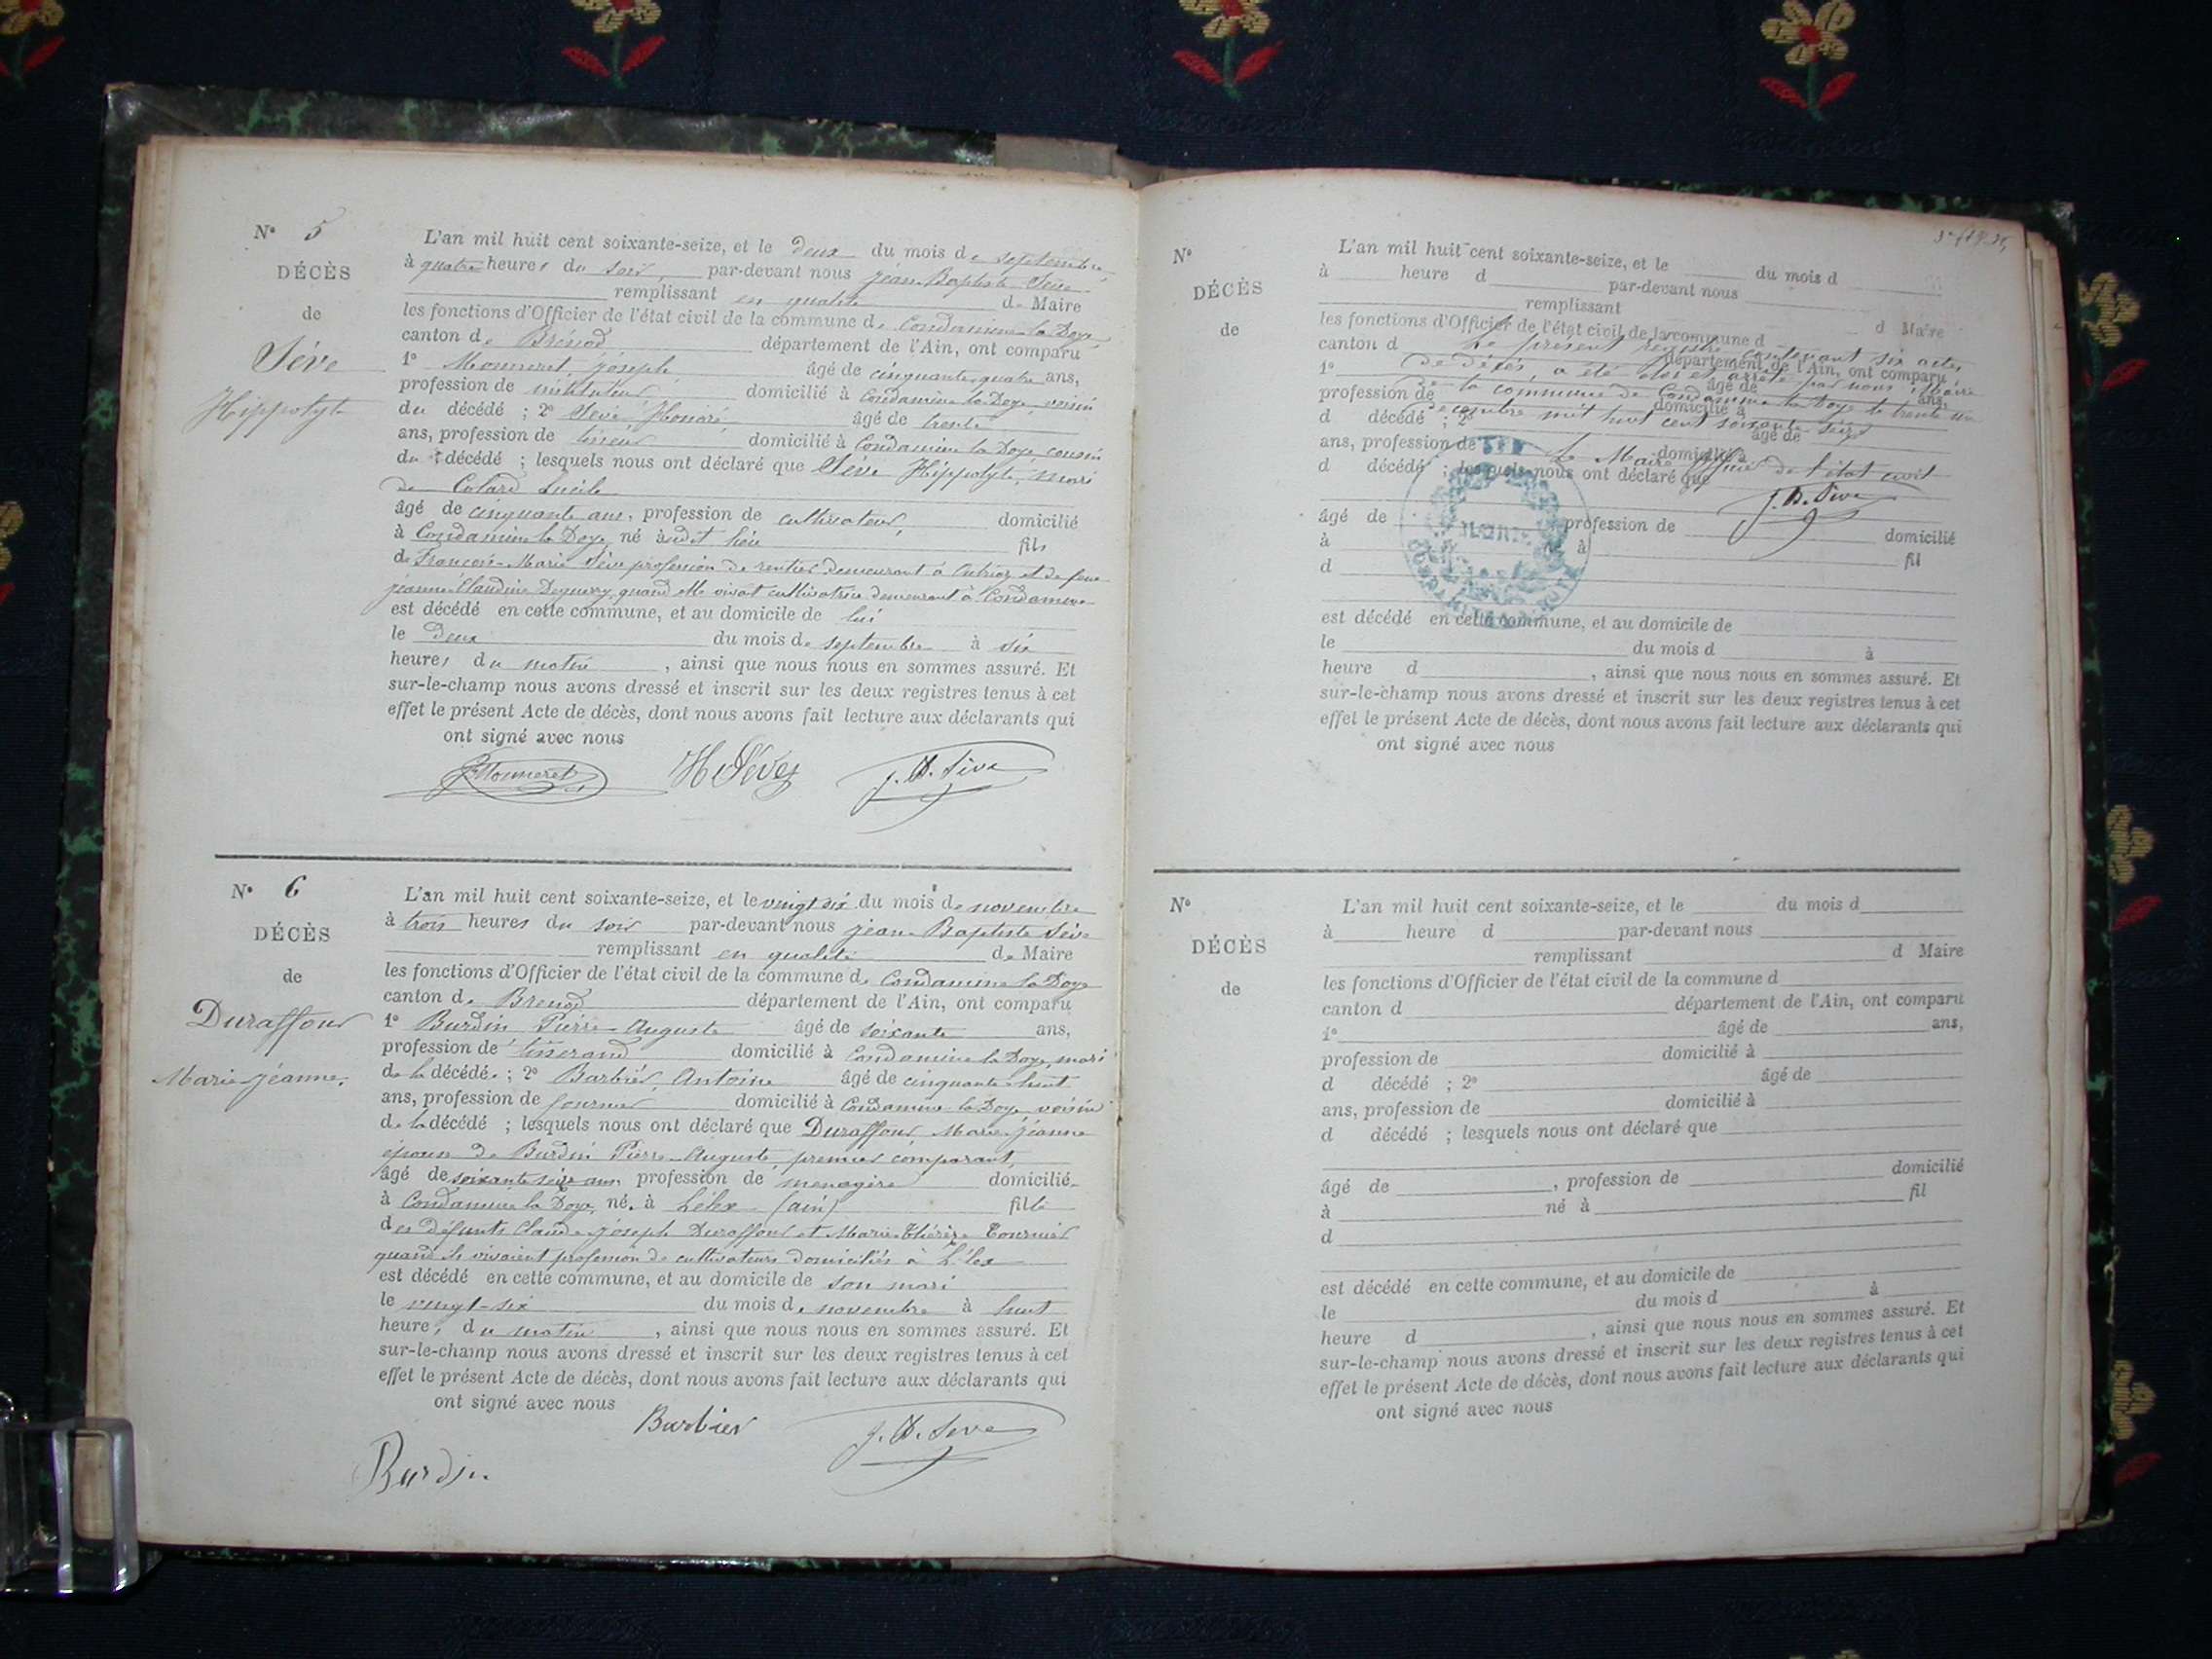 N° 5
DÉCÈS
de
Sève
Hippolyte
L'an mil huit cent soixante-seize, et le deux du mois de septembre
à quatre heures du soir, par-devant nous jean Baptiste Sève
remplissant en qualité de Maire
les fonctions d'Officier de l'état civil de la commune de Condamine la Doye
canton de Brénod département de l'Ain, ont comparu
1° Monneret joseph âgé de cinquante quatre ans,
profession de instituteur domicilié à Condamine la Doye, voisin
du décédé ; 2° Sève Honoré, âgé de trente
ans, profession de domicilié à Condamine la Doye, cousin
du décédé ; lesquels nous ont déclaré que Sève Hippolyte, mari
de Colard Lucile
âgé de cinquante ans, profession de cultivateur, domicilié
à Condamine la Doye, né audit lieu fils
de François-Marie Sève profession de rentier demeurant à et de feue
jeanne Claudine quand elle vivait cultivatrice demeurant à Condamine
est décédé en cette commune, et au domicile de lui
le deux du mois de septembre à six
heures du matin, ainsi que nous nous en sommes assuré. Et
sur-le-champ nous avons dressé et inscrit sur les deux registres tenus à cet
effet le présent Acte de décès, dont nous avons fait lecture aux déclarants qui
ont signé avec nous
Monneret H Sève J. B. Sève
N° 6
DÉCÈS
de
Duraffour
Marie jéanne.
L'an mil huit cent soixante-seize, et le vingt six du mois de novembre
à trois heures du soir par-devant nous jean Baptiste Sève
remplissant en qualité de Maire
les fonctions d'Officier de l'état civil de la commune de Condamine la Doye
canton de Brenod département de l'Ain, ont comparu
1° Burdin Pierre-Auguste âgé de soixante ans,
profession de tisserand domicilié à Condamine la Doye, mari
de la décédée ; 2° Barbier Antoine âgé de cinquante-huit
ans, profession de fournier domicilié à Condamine la Doye, voisin
de la décédé ; lesquels nous ont déclaré que Duraffour Marie-jéanne
épouse de Burdin Pierre-Auguste, premier comparant,
âgé de soixante seize ans, profession de menagère domicilié
à Condamine la Doye, née à Lélex (ain) fille
des défunts Claude-joseph Duraffour et Marie-Thérèse Tournier
quand ils vivaient profession de cultivateurs domiciliés à Lélex
est décédé en cette commune, et au domicile de son mari
le vingt-six du mois de novembre à huit
heures du matin, ainsi que nous nous en sommes assuré. Et
sur-le-champ nous avons dressé et inscrit sur les deux registres tenus à cet
effet le présent Acte de décès, dont nous avons fait lecture aux déclarants qui
ont signé avec nous
Barbier J. B. Sève
Burdin
N°
DÉCÈS
de
L'an mil huit cent soixante-seize, et le du mois d
à heure d par-devant nous
remplissant d Maire
les fonctions d'Officier de l'état civil de la commune d
canton d département de l'Ain, ont comparu
Le présent registre contenant six actes
1° âgé de ans,
de décès, a été clos et arrêté par nous Maire
profession de domicilié à
de la commune de Condamine la Doye le trente un
d décédé ; 2° âgé de
décembre mil huit cent soixante seize
ans, profession de domicilié à
Le Maire officier de l'état civil
d décédé ; lesquels nous ont déclaré que
J. B. Sève
âgé de profession de domicilié
à né à fil
d
est décédé en cette commune, et au domicile de
le du mois d à
heure d , ainsi que nous nous en sommes assuré. Et
sur-le-champ nous avons dressé et inscrit sur les deux registres tenus à cet
effet le présent Acte de décès, dont nous avons fait lecture aux déclarants qui
ont signé avec nous
N°
DÉCÈS
de
L'an mil huit cent soixante-seize, et le du mois d
à heure d par-devant nous
remplissant d Maire
les fonctions d'Officier de l'état civil de la commune d
canton d département de l'Ain, ont comparu
1° âgé de ans,
profession de domicilié à
d décédé ; 2° âgé de
ans, profession de domicilié à
d décédé ; lesquels nous ont déclaré que
âgé de , profession de domicilié
à né à fil
d
est décédé en cette commune, et au domicile de
le du mois d à
heure d , ainsi que nous nous en sommes assuré. Et
sur-le-champ nous avons dressé et inscrit sur les deux registres tenus à cet
effet le présent Acte de décès, dont nous avons fait lecture aux déclarants qui
ont signé avec nous